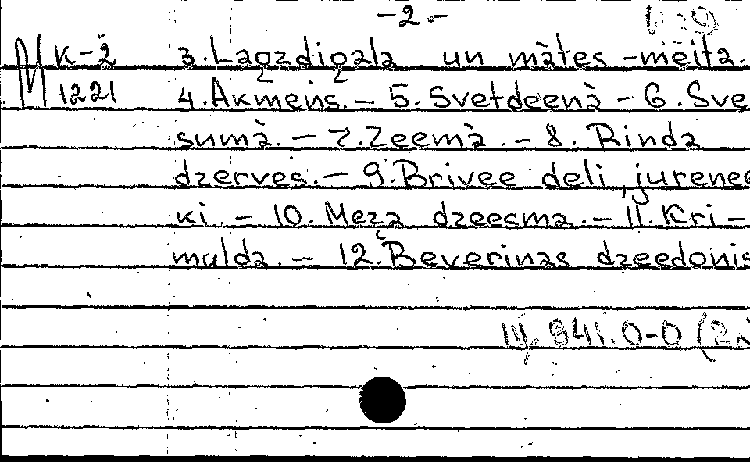 -2-
K-2 3. Lagzdigala un mātes-meita.
1221 4. Akmens. - 5. Svetdeenā - 6. Sve
sumā. - 7. Zeemā. - 8. Rinda
dzerves. - 9. Brivee deli, jurenee
ki. - 10. Meza dzeesma. - 11. Kri-
mulda. - 12. Beverinas dzeedonis
941.0-0